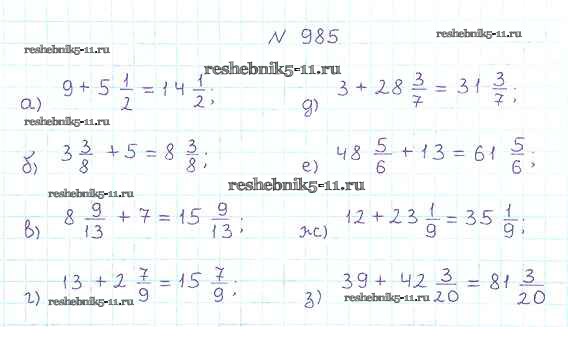 № 985
reshebnik5-11.ru
reshebnik5-11.ru
reshebnik5-11.ru
а) 9 + 5 1/2 = 14 1/2;
д) 3 + 28 3/7 = 31 3/7;
reshebnik5-11.ru
б) 3 3/8 + 5 = 8 3/8;
е) 48 5/6 + 13 = 61 5/6;
reshebnik5-11.ru
reshebnik5-11.ru
в) 8 9/13 + 7 = 15 9/13;
ж) 12 + 23 1/9 = 35 1/9;
г) 13 + 2 7/9 = 15 7/9;
з) 39 + 42 3/20 = 81 3/20
reshebnik5-11.ru
reshebnik5-11.ru